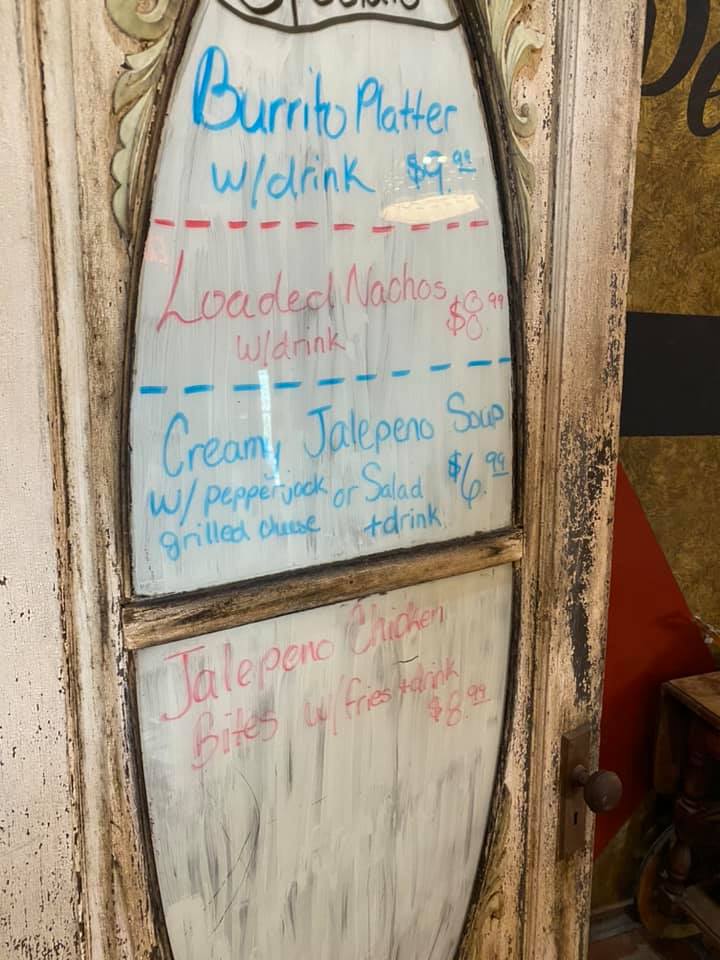 Burrito Platter
w/drink $9.99
Loaded Nachos $8.99
w/drink
Creamy Jalepeno Soup
w/pepperjack or Salad $6.99
grilled cheese +drink
Jalepeno Chicken
Bites w/fries +drink
$8.99
De